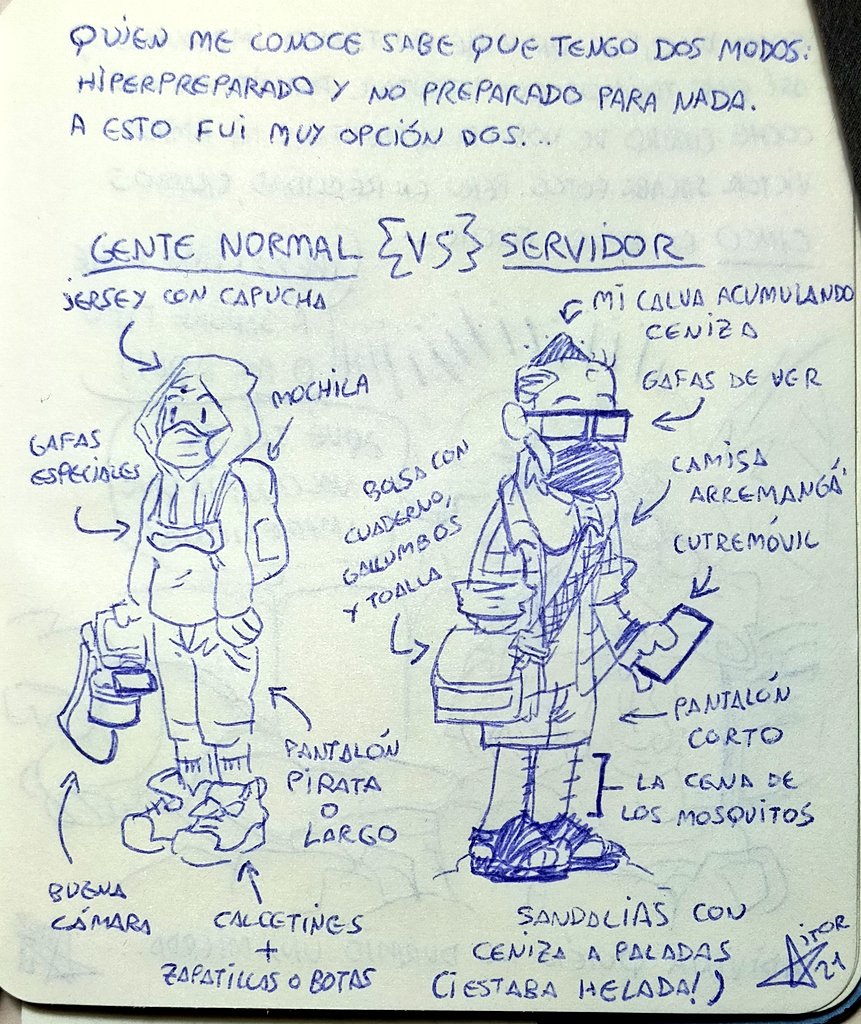 QUIEN ME CONOCE SABE QUE TENGO DOS MODOS:
HIPERPREPARADO Y NO PREPARADO PARA NADA.
A ESTO FUI MUY OPCIÓN DOS...
GENTE NORMAL {VS} SERVIDOR
JERSEY CON CAPUCHA
MOCHILA
GAFAS
ESPECIALES
BUENA
CÁMARA
PANTALÓN
PIRATA
O
LARGO
CALCETINES
+
ZAPATILLAS O BOTAS
MI CALVA ACUMULANDO
CENIZA
GAFAS DE VER
CAMISA
ARREMANGÁ
CUTREMÓVIL
BOLSA CON
CUADERNO,
GALLUMBOS
Y TOALLA
PANTALÓN
CORTO
LA CENA DE
LOS MOSQUITOS
SANDALIAS CON
CENIZA A PALADAS
(¡ESTABA HELADA!)
AITOR
21